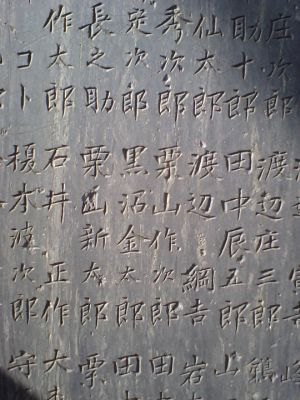 庄次郎
助十郎
仙太郎
秀次郎
次郎
長之助
作太郎
渡辺庄三郎
田中辰五郎
渡辺綱吉
栗山作次郎
黒沼金太郎
栗山新太郎
石井正作
榎本波次郎
山
岩
田
田
栗
大
守